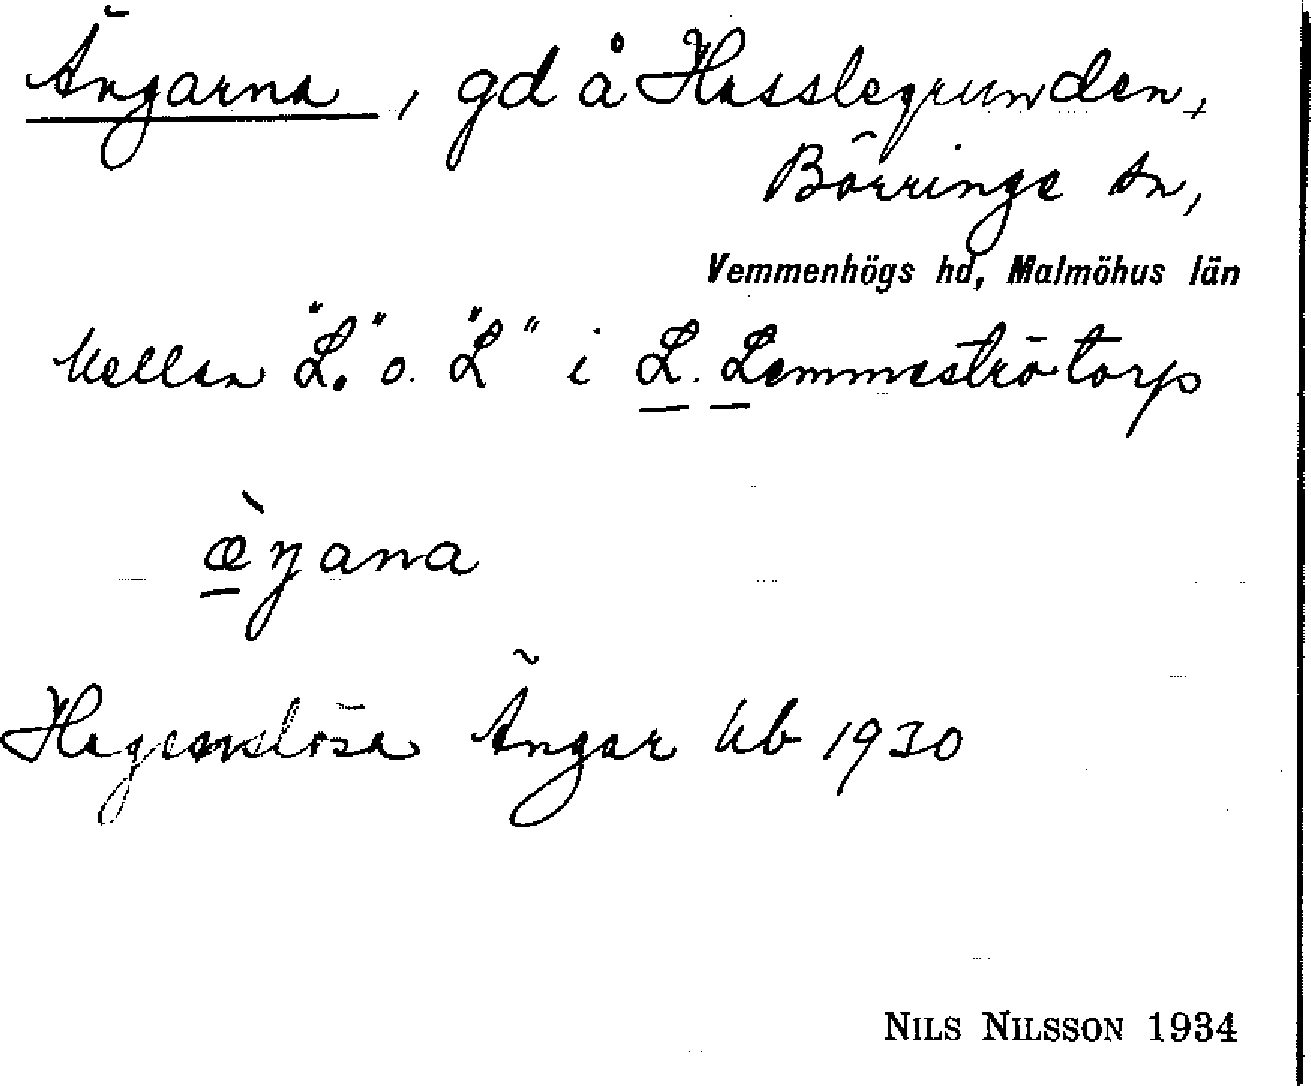 Ängarna, gd å Hasslegrunden,
Börringe sn,
Vemmenhögs hd, Malmöhus län
Mellan "L." o. "L" i L. Lemmeströtorp
æ̀ŋana
Hagemslösa Ängar Ub 1930
NILS NILSSON 1934